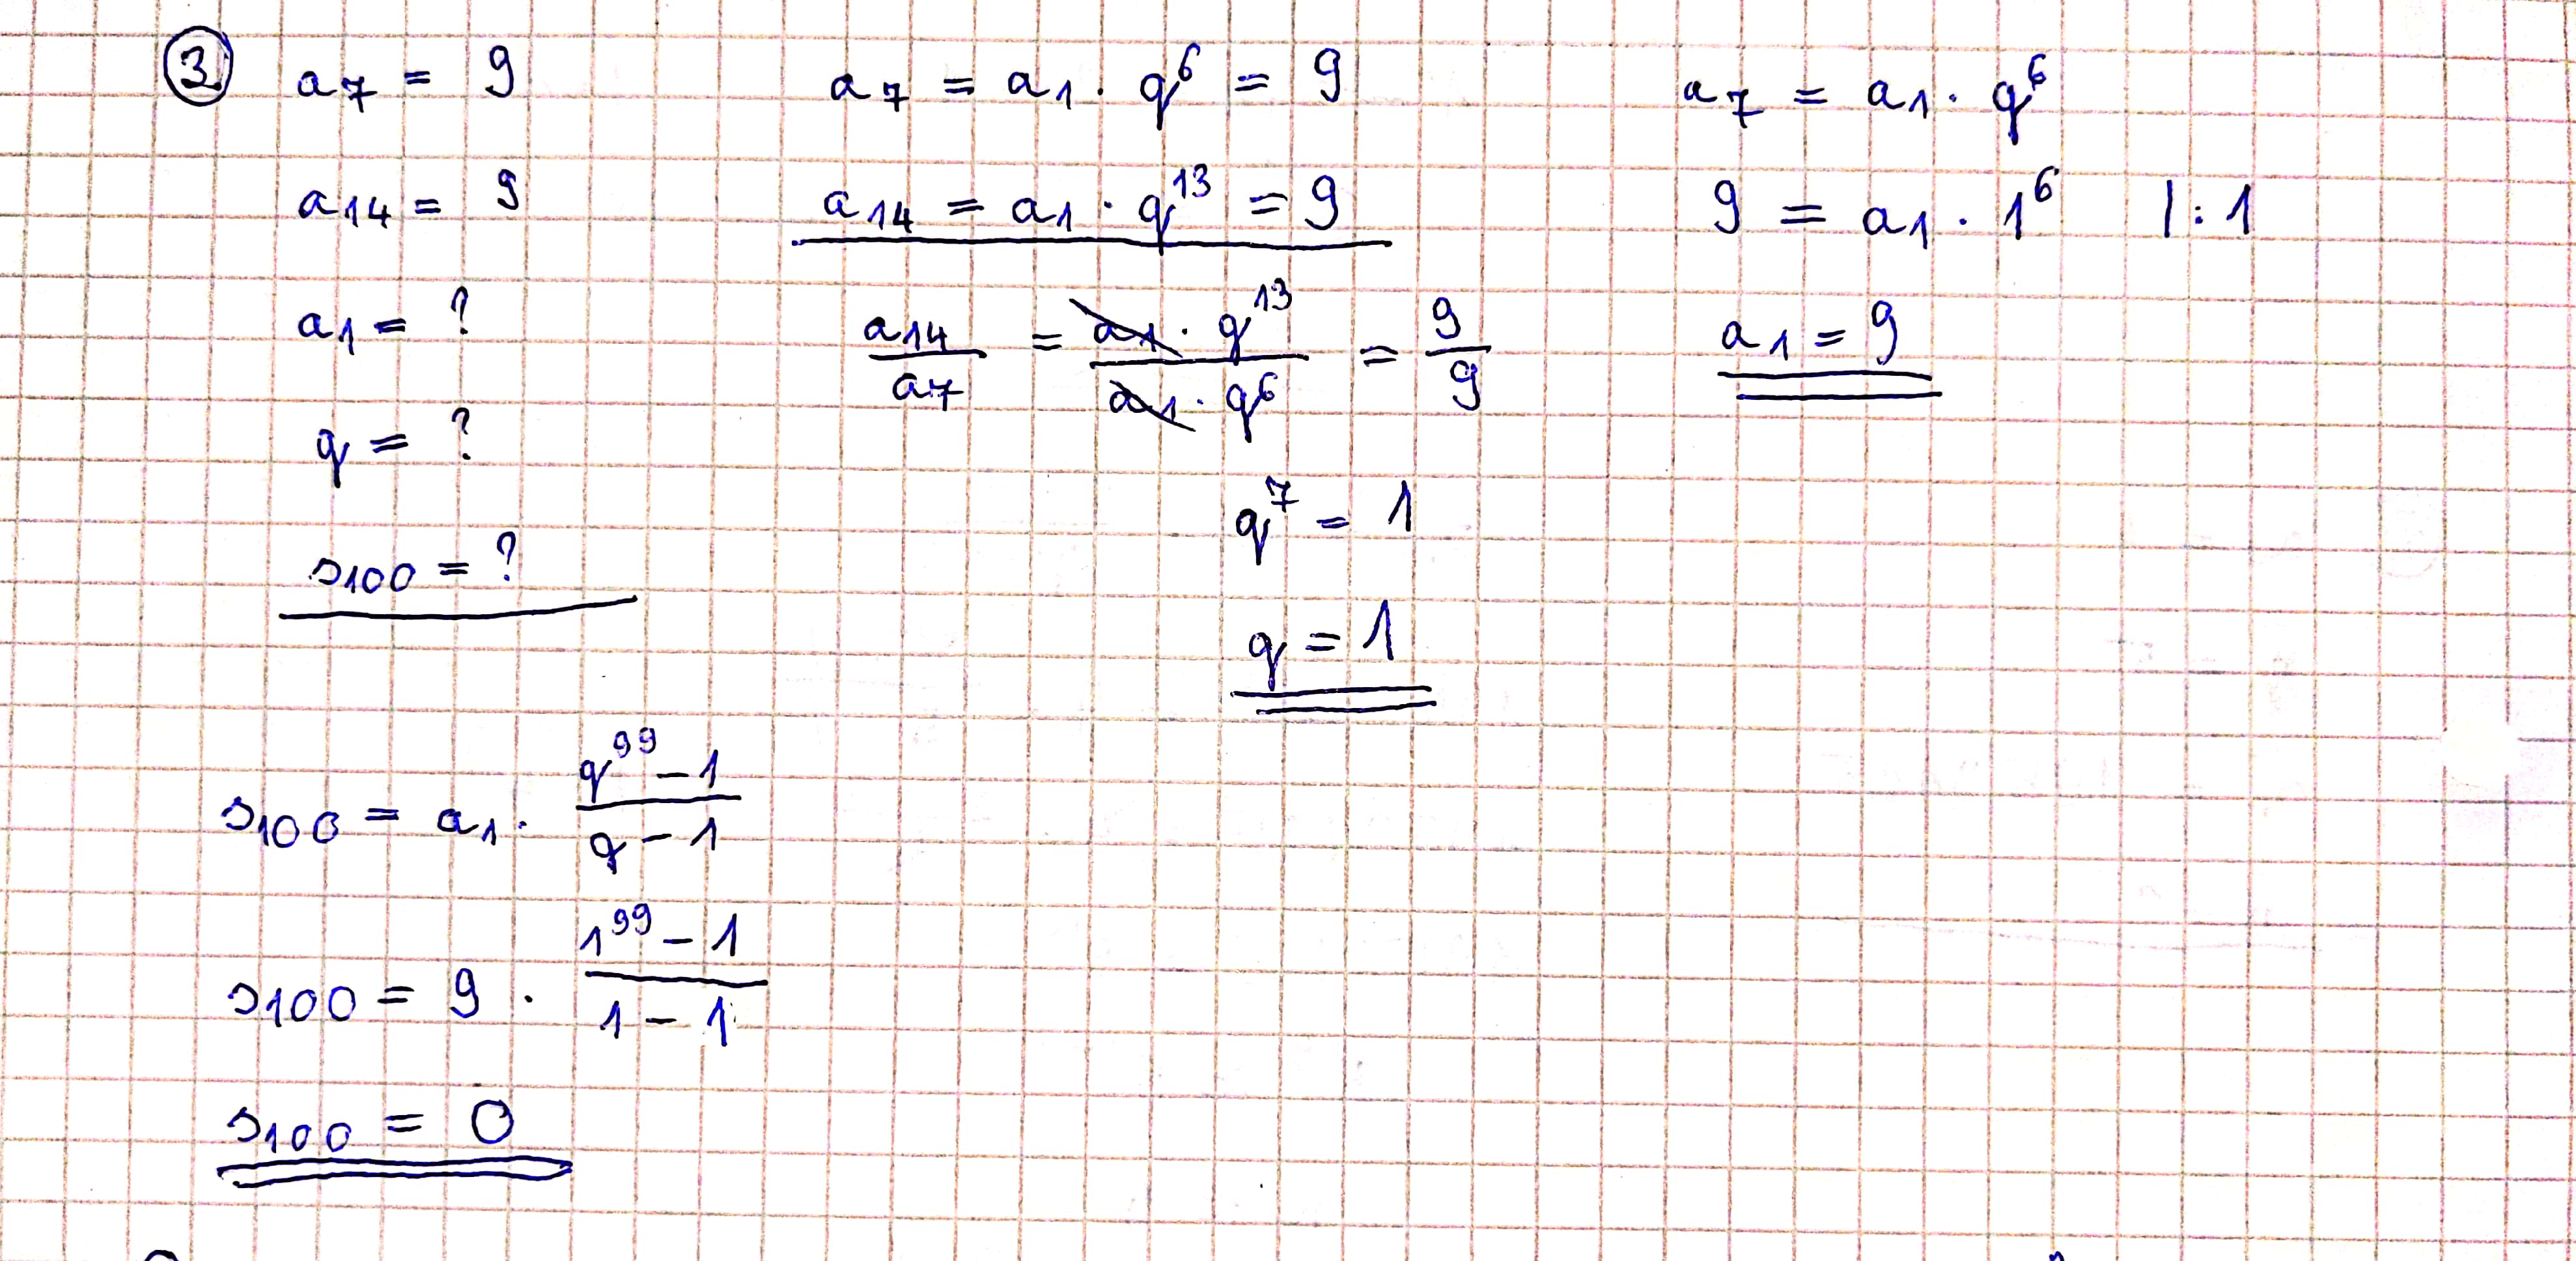 ③ a₇ = 9
a₁₄ = 9
a₁ = ?
q = ?
s₁₀₀ = ?
a₇ = a₁ · q⁶ = 9
a₁₄ = a₁ · q¹³ = 9
a₁₄/a₇ = a₁ · q¹³/a₁ · q⁶ = 9/9
q⁷ = 1
q = 1
a₇ = a₁ · q⁶
9 = a₁ · 1⁶ |: 1
a₁ = 9
s₁₀₀ = a₁ · q⁹⁹ – 1/q – 1
s₁₀₀ = 9 · 1⁹⁹ – 1/1 – 1
s₁₀₀ = 0